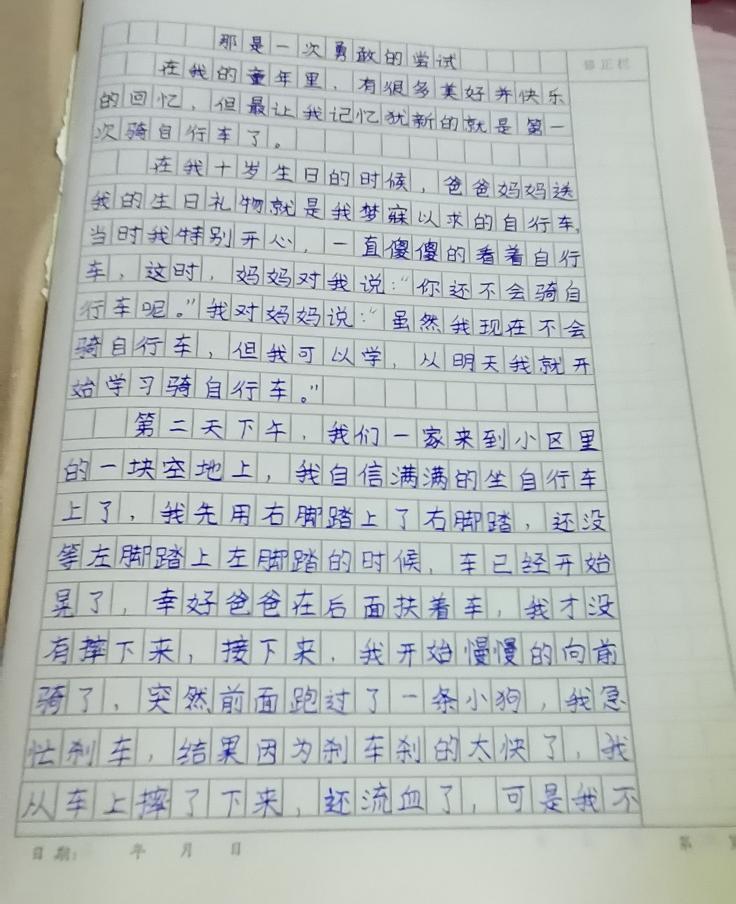 那是一次勇敢的尝试
修正栏
在我的童年里，有很多美好并快乐
的回忆，但最让我记忆犹新的就是第一
次骑自行车了。
在我十岁生日的时候，爸爸妈妈送
我的生日礼物就是我梦寐以求的自行车，
当时我特别开心，一直傻傻的看着自行
车，这时，妈妈对我说：“你还不会骑自
行车呢。”我对妈妈说：“虽然我现在不会
骑自行车，但我可以学，从明天我就开
始学习骑自行车。”
第二天下午，我们一家来到小区里
的一块空地上，我自信满满的坐自行车
上了，我先用右脚踏上了右脚踏，还没
等左脚踏上左脚踏的时候，车已经开始
晃了，幸好爸爸在后面扶着车，我才没
有摔下来，接下来，我开始慢慢的向前
骑了，突然前面跑过了一条小狗，我急
忙刹车，结果因为刹车刹的太快了，我
从车上摔了下来，还流血了，可是我不
日期： 年 月 日
第 页